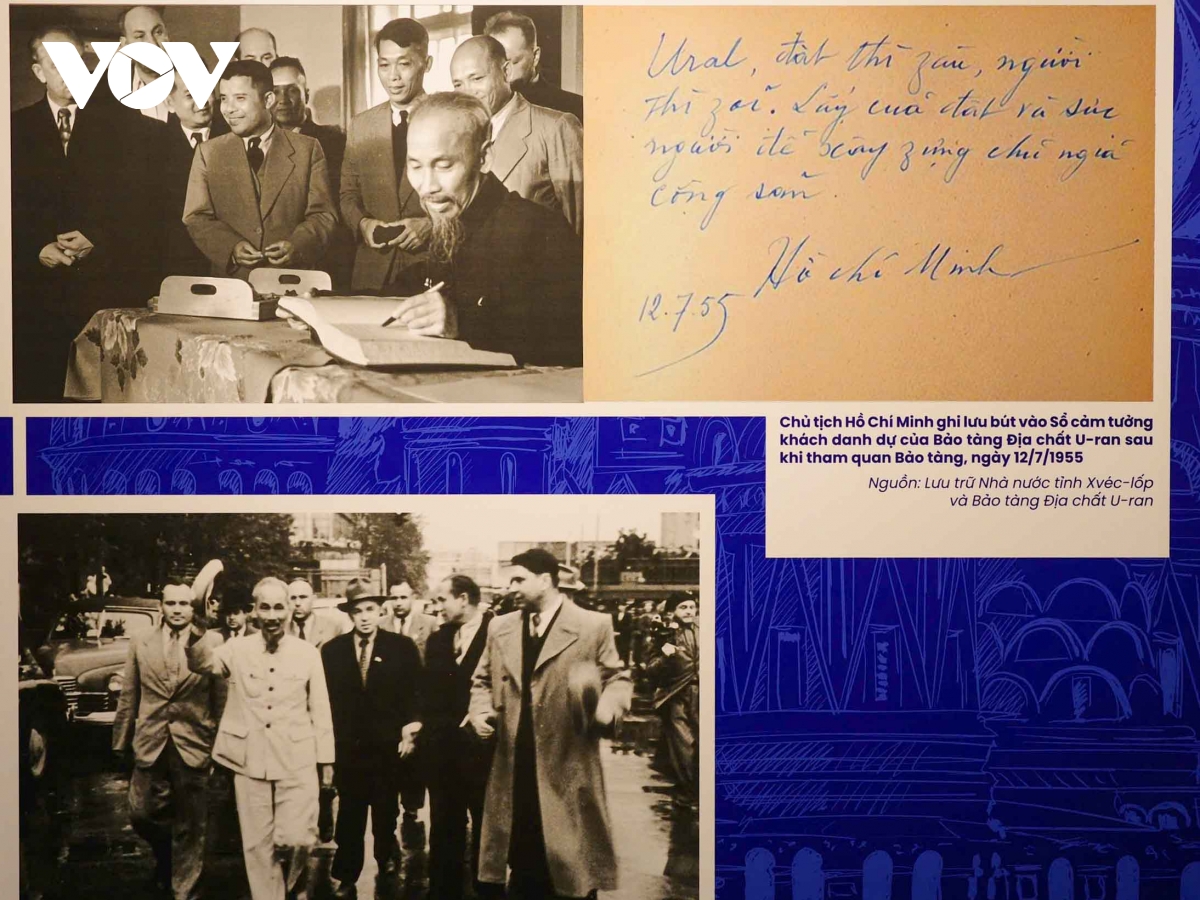 VOV
Ural, đất thì zầu, người
thì zỏi. Lấy cuả đất và sức
người để xây zựng chủ nghiã
cộng sản.
Hồ chí Minh
12.7.55
Chủ tịch Hồ Chí Minh ghi lưu bút vào Sổ cảm tưởng
khách danh dự của Bảo tàng Địa chất U-ran sau
khi tham quan Bảo tàng, ngày 12/7/1955
Nguồn: Lưu trữ Nhà nước tỉnh Xvéc-lốp
và Bảo tàng Địa chất U-ran